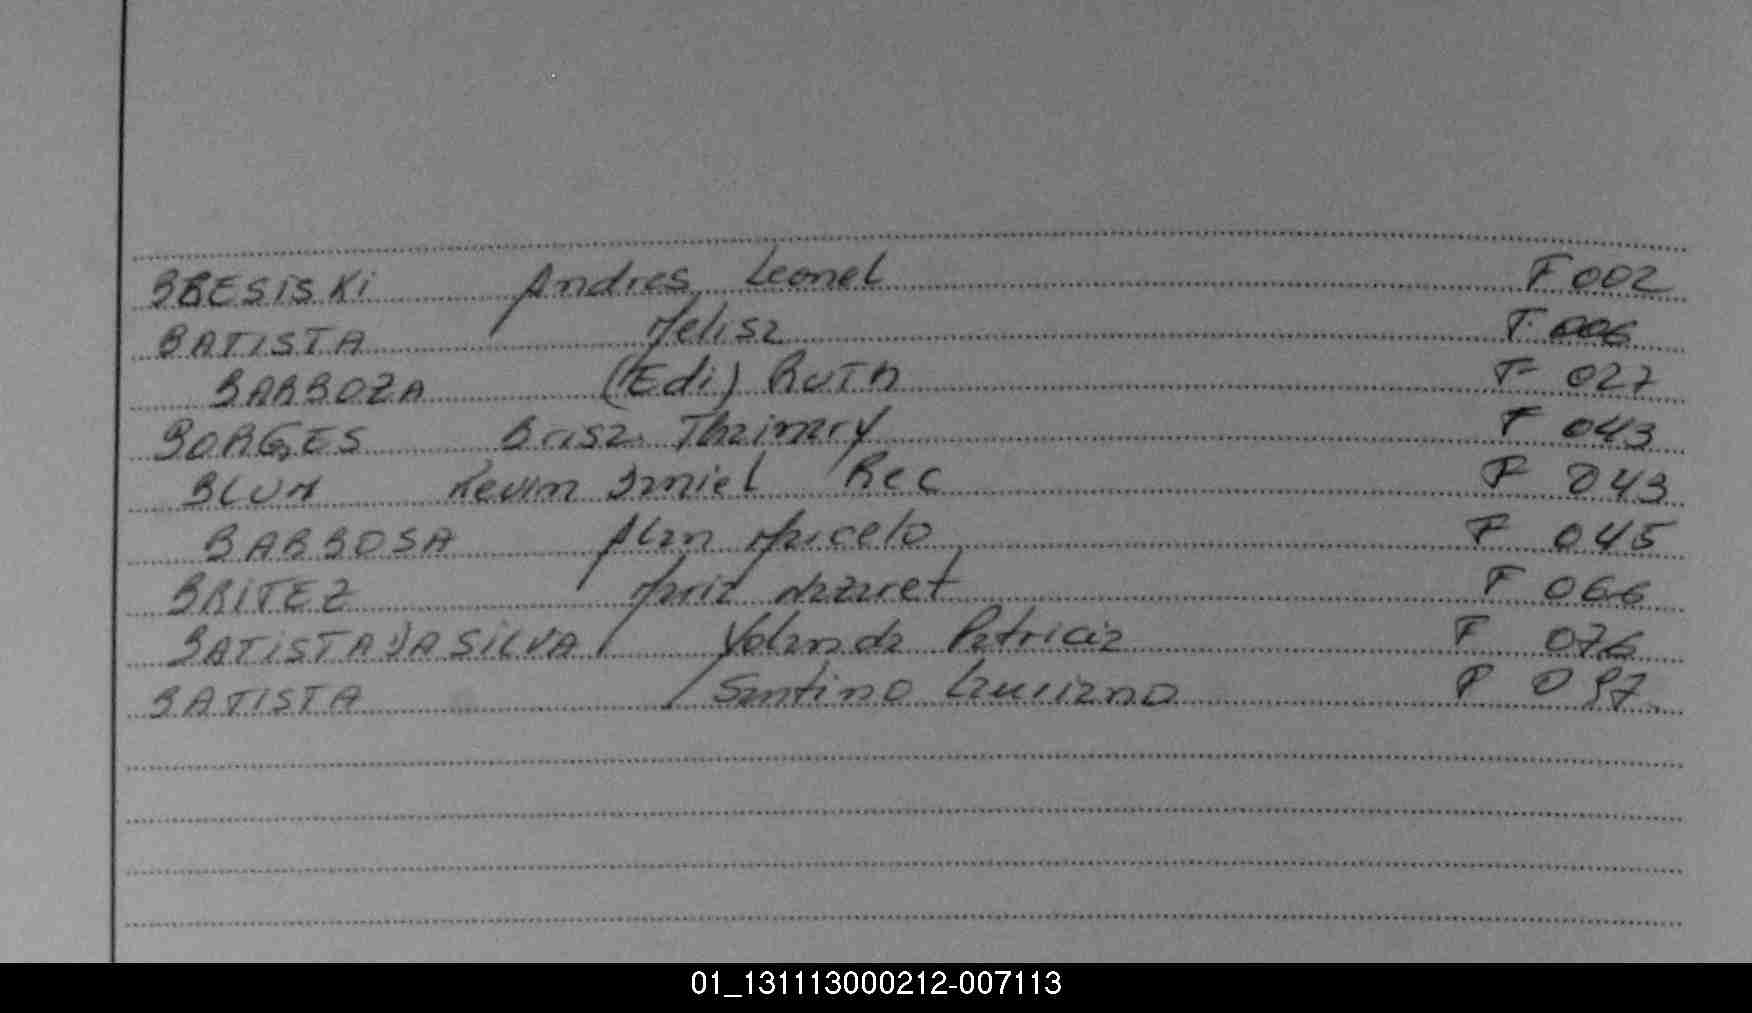 BBESISKI Andres Leonel F 002
BATISTA Melisa F 006
BARBOZA (Edi) RUTH F 027
BORGES Brisa Thaimary F 043
BLUM Kevin Daniel Rec F 043
BARBOSA Alan Marcelo F 045
BRITEZ Maria Nazaret F 066
BATISTA DA SILVA Yolanda Patricia F 076
BATISTA Santino Luciano F 097
01_131113000212-007113